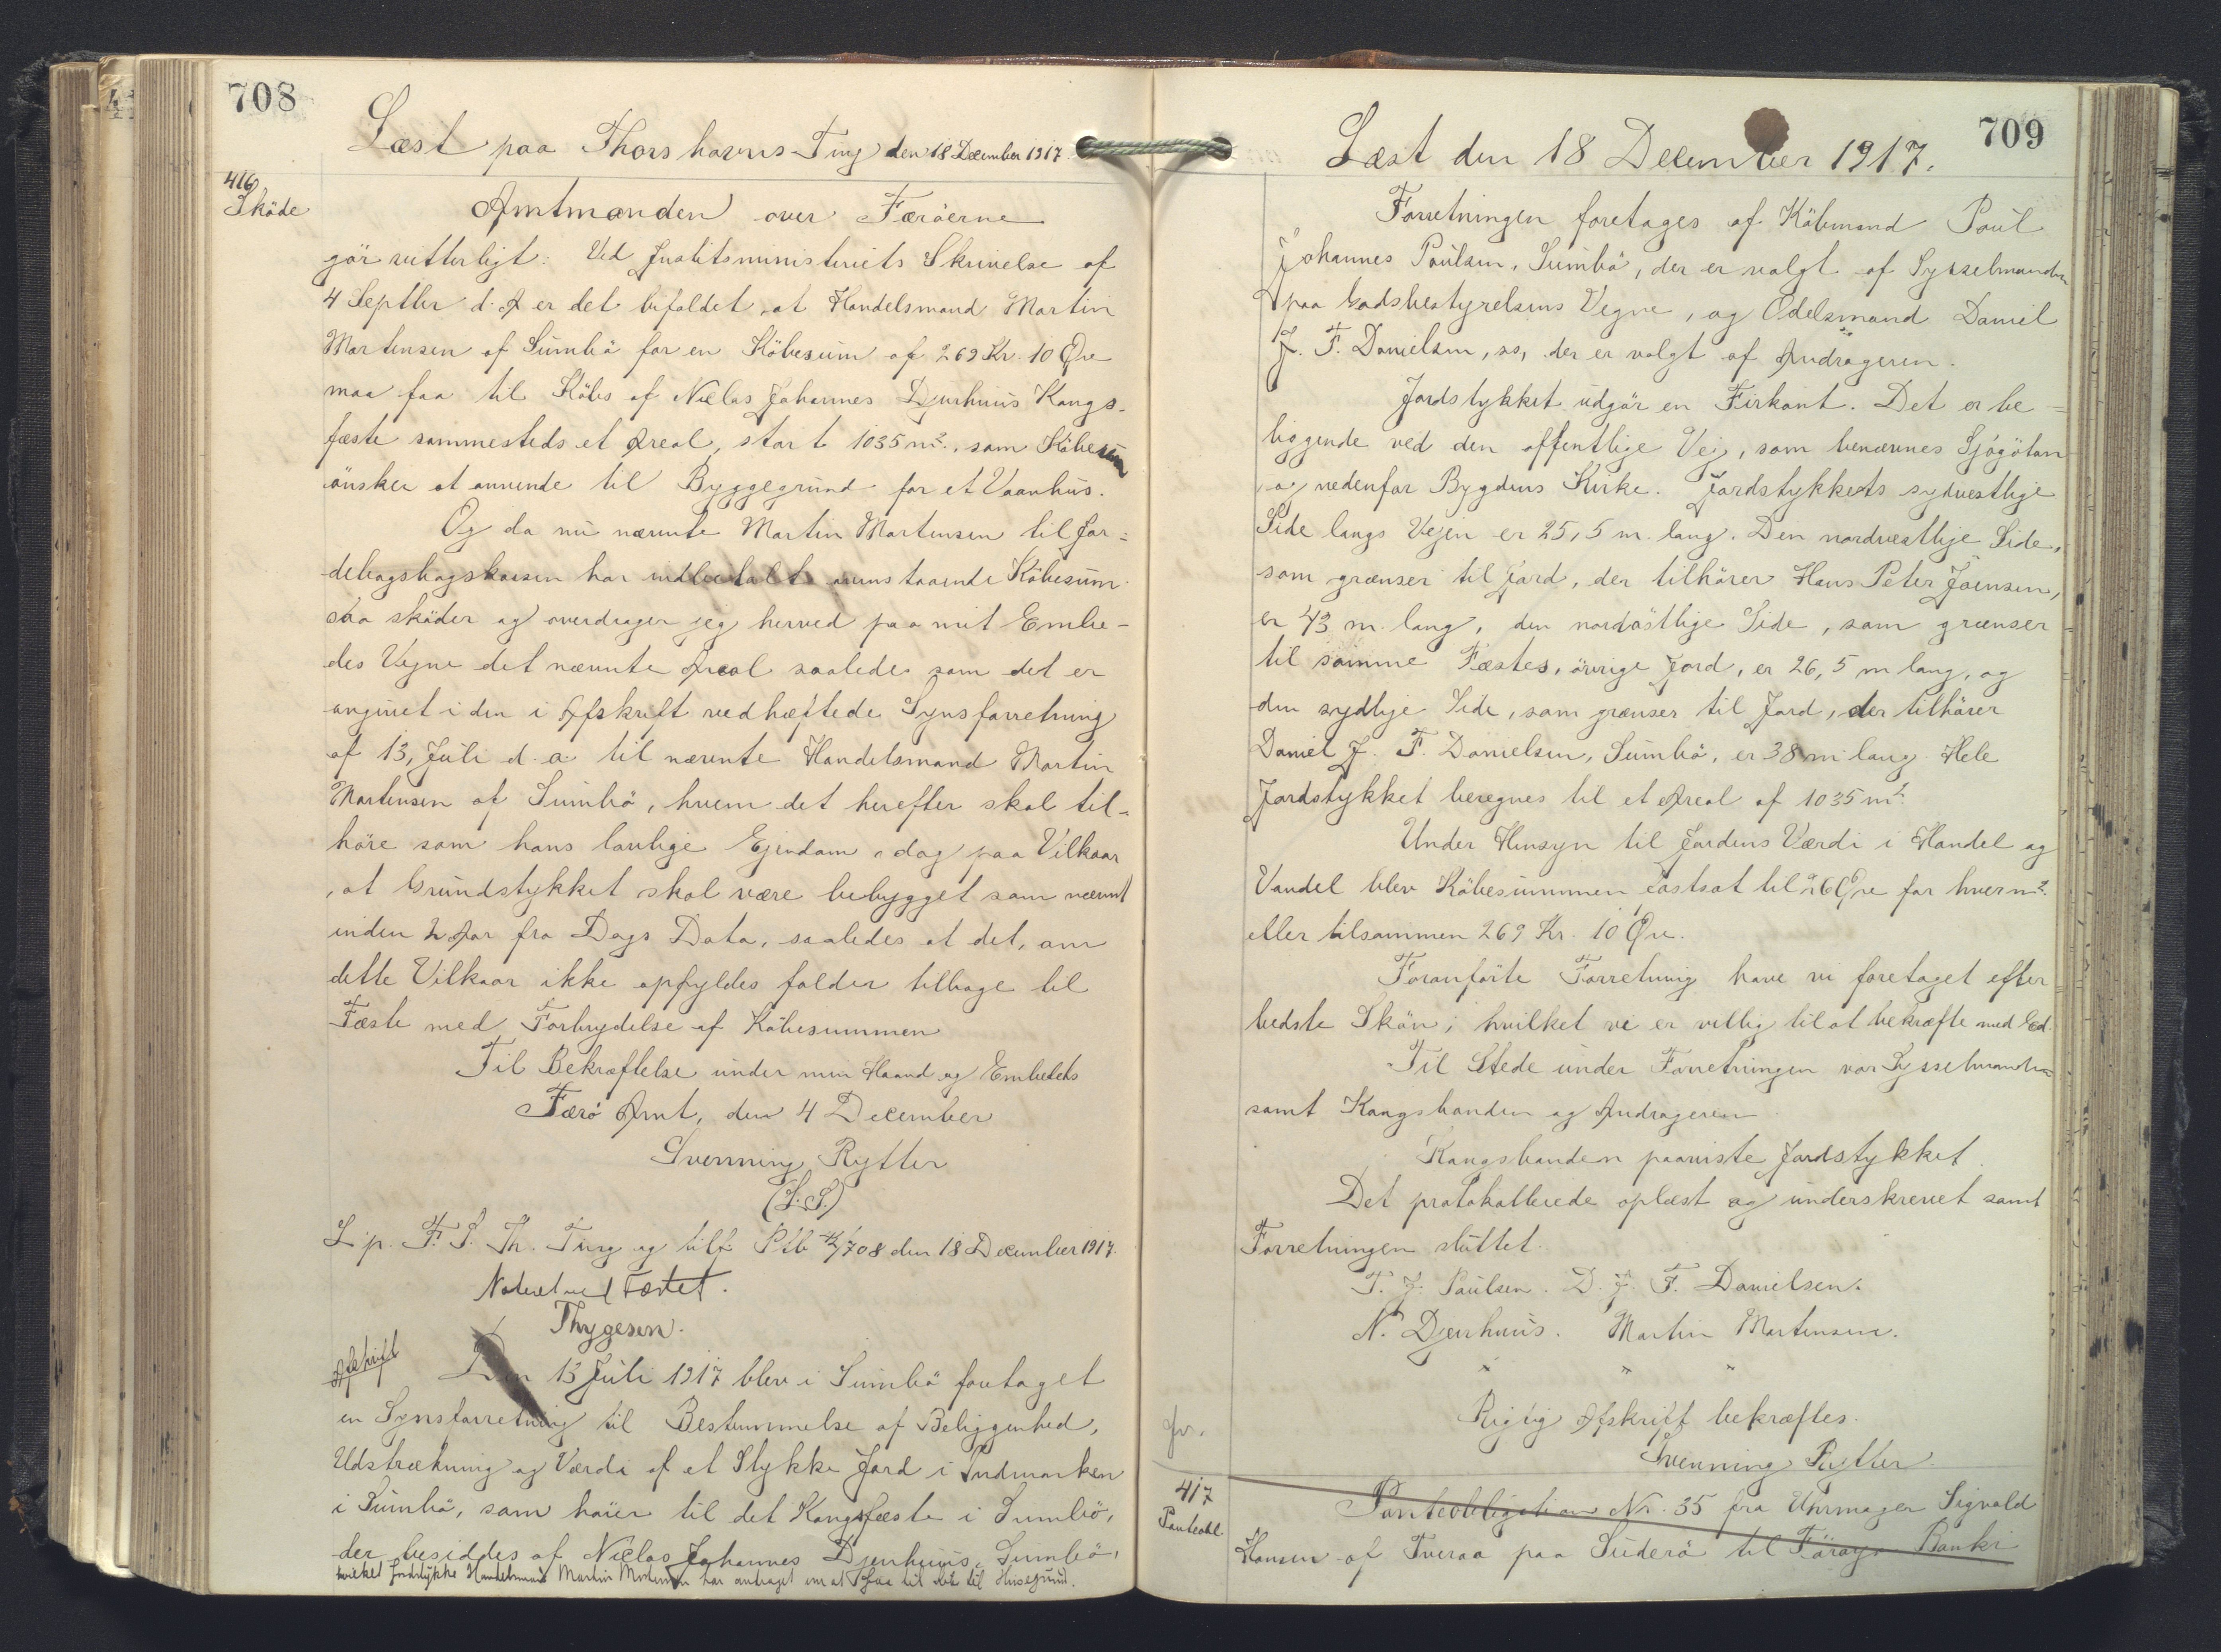 708
Læst paa Thorshavns Ting den 18 December 1917.
416
Sköde
Amtmanden over Færöerne
gör vitterligt: Ved Justitsministeriets Skrivelse af
4 Septbr d. A er det bifaldet, at Handelsmand Martin
Martensen af Sumbö for en Köbesum af 269 Kr. 10 Øre
maa faa til Köbs af Niclas Johannes Djurhuus Kongs-
fæste sammesteds et Areal, stort 1035 m2., som Köberen
önsker at anvende til Byggegrund for et Vaanhus.
Og da nu nævnte Martin Martensen til Jor=
debogskassen har indbetalt ovenstaaende Köbesum
saa sköder og overdrager jeg herved paa mit Embe-
des Vegne det nævnte Areal saaledes som det er
angivet i den i Afskrift vedhæftede Synsforretning
af 13, Juli d. a. til nævnte Handelsmand Martin
Martensen af Sumbö, hvem det herefter skal til-
höre som hans lovlige Ejendom, dog paa Vilkaar
, at Grundstykket skal være bebygget som nævnt
inden 2 Aar fra Dags Dato, saaledes at det, om
dette Vilkaar ikke opfyldes falder tilbage til
Fæste med Fortrydelse af Köbesummen
Til Bekræftelse under min Haand og Embedets
Færö Amt, den 4 December
Svenning Rytter
(L.S.)
L. p. F. S. Th. Ting og tilf. Ptb 708 den 18 December 1917.
Noteret ved Fæstet.
Thygesen.
Afskrift
Den 13 Juli 1917 blev i Sumbö foretaget
en Synsforretning til Bestemmelse af Beliggenhed,
Udstrækning og Værdi af et Stykke Jord i Indmarken
i Sumbö, som hörer til det Kongsfæste i Sumbö,
der besiddes af Niclas Johannes Djurhuus, Sumbö,
hvilket Jordstykke Handelsmand Martin Mortensen har andraget om at faa til Köb til Husegrund.
709
Læst den 18 December 1917.
Forretningen foretages af Köbmand Poul
Johannes Poulsen, Sumbö, der er valgt af Sysselmanden
paa Godsbestyrelsens Vegne, og Odelsmand Daniel
J. F. Danielsen, ss, der er valgt af Andrageren.
Jordstykket udgör en Firkant. Det er be=
liggende ved den offentlige Vej, som benævnes Sjógötan
, og nedenfor Bygdens Kirke. Jordstykkets sydvestlige
Side langs Vejen er 25,5 m. lang. Den nordvestlige Side,
som grænser til Jord, der tilhörer Hans Peter Joensen,
er 43 m. lang, den nordöstlige Side, som grænser
til samme Fæstes, övrige Jord, er 26,5 m lang, og
den sydlige Side, som grænser til Jord, der tilhörer
Daniel J. F. Danielsen, Sumbö, er 38 m lang. Hele
Jordstykket beregnes til et Areal af 1035 m2.
Under Hensyn til Jordens Værdi i Handel og
Vandel blev Köbesummen fastsat til 26 Øre for hver m2.
eller tilsammen 269 Kr. 10 Øre.
Foranförte Forretning have vi foretaget efter
bedste Skön, hvilket vi er villig til at bekræfte med Ed.
Til Stede under Forretningen var Sysselmanden
samt Kongsbonden og Andrageren
Kongsbonden paaviste Jordstykket.
Det protokollerede oplæst og underskrevet samt
Forretningen sluttet.
P. J. Poulsen. D. J. F. Danielsen.
N. Djurhuus. Martin Martensen.
" " "
Rigtig Afskrift bekræftes.
Svenning Rytter.
417
Panteobl
Panteobligation Nr. 35 fra Uhrmager Sigvald
Hansen af Tveraa paa Suderö til Föroya Banki